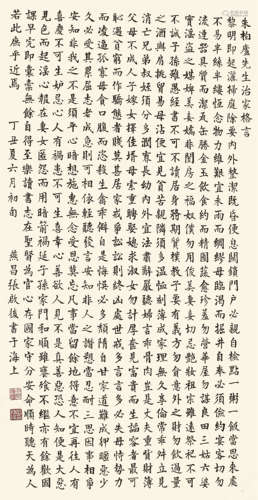 朱柏廬先生治家格言
黎明即起灑掃庭除要內外整潔既昏便息關鎖門戶必親自檢點一粥一飯當思來處
不易半絲半縷恆念物力維艱宜未雨而綢繆毋臨渴而掘井自奉必須儉約宴客切勿
流連器具質而潔瓦缶勝金玉飲食約而精園蔬愈珍饈勿營華屋勿謀良田三姑六婆
實淫盜之媒婢美妾嬌非閨房之福奴僕勿用俊美妻妾切忌豔妝祖宗雖遠祭祀不可
不誠子孫雖愚經書不可不讀居身務期質樸教子要有義方勿貪意外之財勿飲過量
之酒與肩挑貿易毋佔便宜見貧苦親鄰須多溫恤刻薄成家理無久享倫常乖舛立見
消亡兄弟叔姪須分多潤寡長幼內外宜法肅辭嚴聽婦言乖骨肉豈是丈夫重貲財薄
父母不成人子嫁女擇佳婿毋索重聘娶媳求淑女勿計厚奩見富貴而生諂容者最可
恥遇貧窮而作驕態者賤莫甚居家戒爭訟訟則終凶處世戒多言言多必失毋恃勢力
而凌逼孤寡毋貪口腹而恣殺生禽乖僻自是悔誤必多頹惰自甘家道難成狎暱惡少
久必受其累屈志老成急則可相依輕聽發言安知非人之譖愬當忍耐三思因事相爭
安知非我之不是須平心暗想施惠無念受恩莫忘凡事當留餘地得意不宜再往人有
喜慶不可生妒忌心人有禍患不可生喜幸心善欲人見不是真善惡恐人知便是大惡
見色而起淫心報在妻女匿怨而用暗箭禍延子孫家門和順雖饔飧不繼亦有餘歡國
課早完即囊橐無餘自得至樂讀書志在聖賢為官心存國家守分安命順時聽天為人
若此庶乎近焉 丁丑夏六月初旬 張啟後書于海上